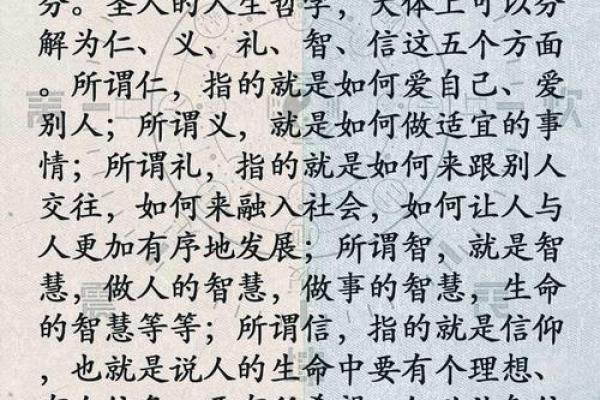 分。圣人的人生哲学，大体上可以分
解为仁、义、礼、智、信这五个方面
。所谓仁，指的就是如何爱自己、爱
别人；所谓义，就是如何做适宜的事
情；所谓礼，指的就是如何来跟别人
交往，如何来融入社会，如何让人与
人更加有序地发展；所谓智，就是智
慧，做人的智慧，做事的智慧，生命
的智慧等等；所谓信，指的就是信仰
，也就是说人的生命中要有个理想、
离
坎
震
艮